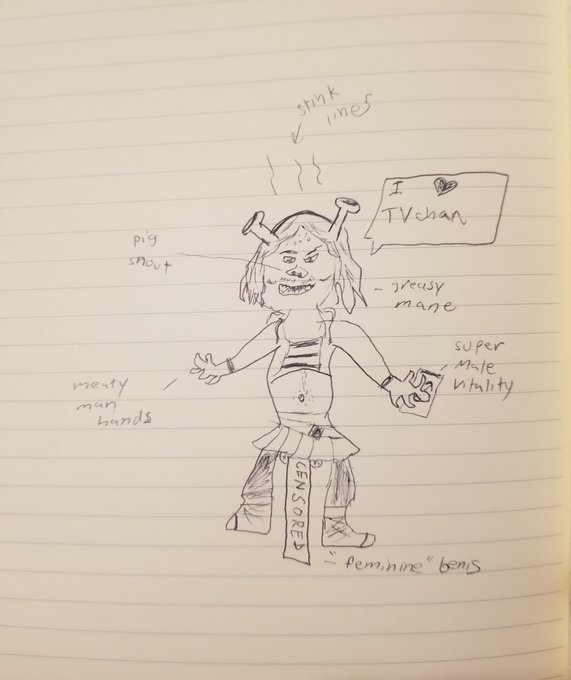 stink
lines
I ♥
TVchan
pig
snout
greasy
mane
super
Male
Vitality
meaty
man
hands
CENSORED
"feminine" benis